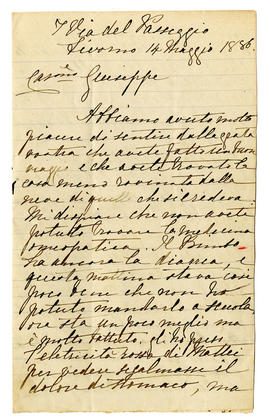 7 Via del Passeggio
Livorno 14 Maggio 1886.
Carſſino Giuseppe
Abbiamo avuto molto
piacere di sentire dalla grata
vostra che avete fatto un buon
viaggio e che avete trovato la
casa meno rovinata dalla
neve di quel che si credeva.
Mi dispiace che non avete
potuto trovare la medicina
omeopatica. Il Bimbo
ha ancora la diarea, e
questa mattina stava così
poco bene che non ho
potuto mandarlo a scuola
ora sta un poco meglio ma
è molto abbattuto, gli ho
l'eletricità rossa di Mattei
per vedere se calmasse il
dolore di stomaco, ma